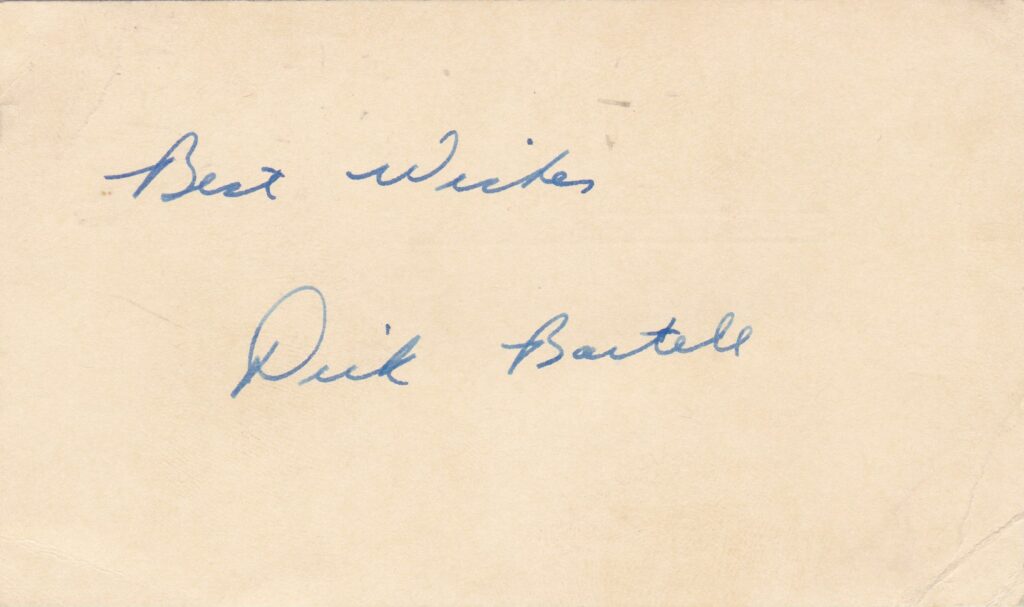 Best Wishes
Dick Bartell